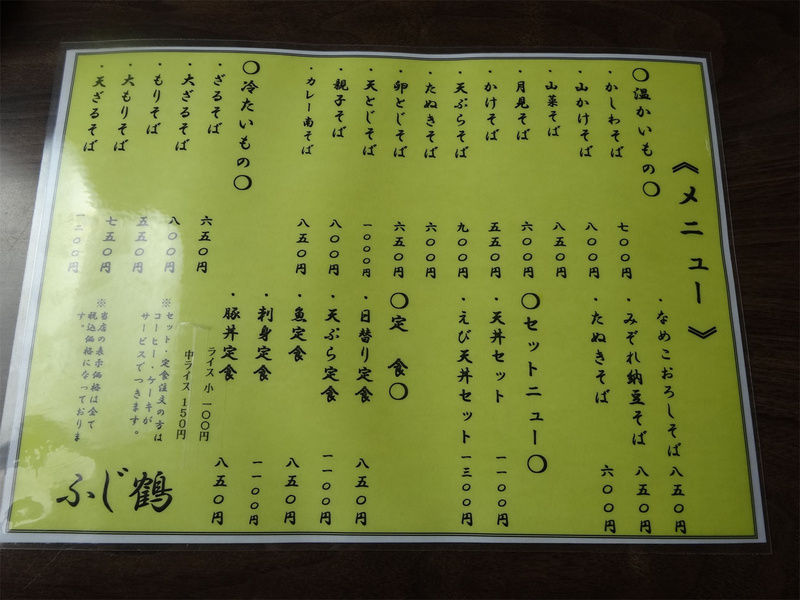 《メニュー》
〇温かいもの〇
・かしわそば 七〇〇円
・山かけそば 八〇〇円
・山菜そば 八五〇円
・月見そば 六〇〇円
・かけそば 五五〇円
・天ぷらそば 九〇〇円
・たぬきそば 六〇〇円
・卵とじそば 六五〇円
・天とじそば 一〇〇〇円
・親子そば 八〇〇円
・カレー南そば 八五〇円
〇冷たいもの〇
・ざるそば 六五〇円
・大ざるそば 八〇〇円
・もりそば 五五〇円
・大もりそば 七五〇円
・天ざるそば 一二〇〇円
・なめこおろしそば 八五〇円
・みぞれ納豆そば 八五〇円
・たぬきそば 六〇〇円
〇セットニュー〇
・天丼セット 一一〇〇円
・えび天丼セット 一三〇〇円
〇定 食〇
・日替り定食 八五〇円
・天ぷら定食 一一〇〇円
・魚定食 八五〇円
・刺身定食 一一〇〇円
・豚丼定食 八五〇円
ライス 小 一〇〇円
中ライス 150円
※セット・定食注文の方は
コーヒー・ケーキが
サービスでつきます。
※当店の表示価格は全て
税込価格になっておりま
す。
ふじ鶴